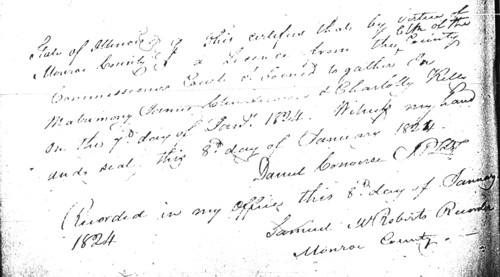 State of Illinois This certifies that by virtue of
Monroe County a Licence from the Clk of the County
Commissioners Court I Joined together in
Matrimony & Charlotty Kelly
on the 7th day of Jany. 1824. Witness my hand
and seal this 8th day of January 1824.
Daniel Converse J.P.
Recorded in my office this 8th day of January
1824 Samuel McRoberts Recorder
Monroe County